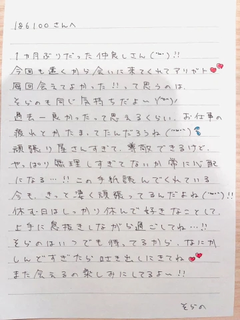 186100さんへ
1ヵ月ぶりだった仲良しさん(´˘`)!!
今回も遠くから会いに来てくれてアリガト
毎回会えてよかった!!って思うのは、
そらのも同じ気持ちだよー
過去一良かったって思えるくらい、お仕事の
疲れとかたまってたんだろうね
頑張り屋さんすぎて、尊敬できるけど、
やっぱり無理しすぎてないか常に心配
になる…!!この手紙読んでくれている
今も、きっと凄く頑張ってるんだよね
休む日はしっかり休んで好きなことして、
上手に息抜きしながら過ごしてね…!!
そらのはいつでも待ってるから、なにか
しんどすぎたら吐き出しにきてね
また会えるの楽しみにしてるよー!!
そらの